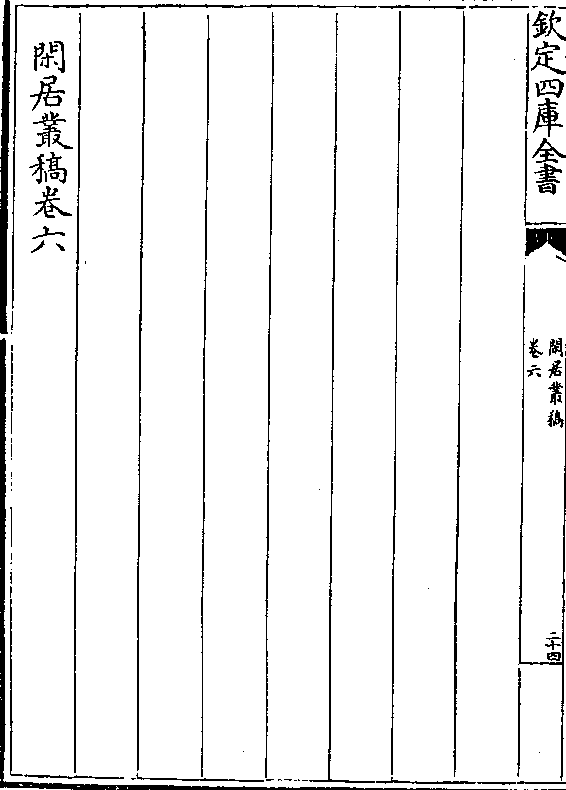 欽定四庫全書
閑居叢稿
卷六
二十四
閑居叢稿卷六